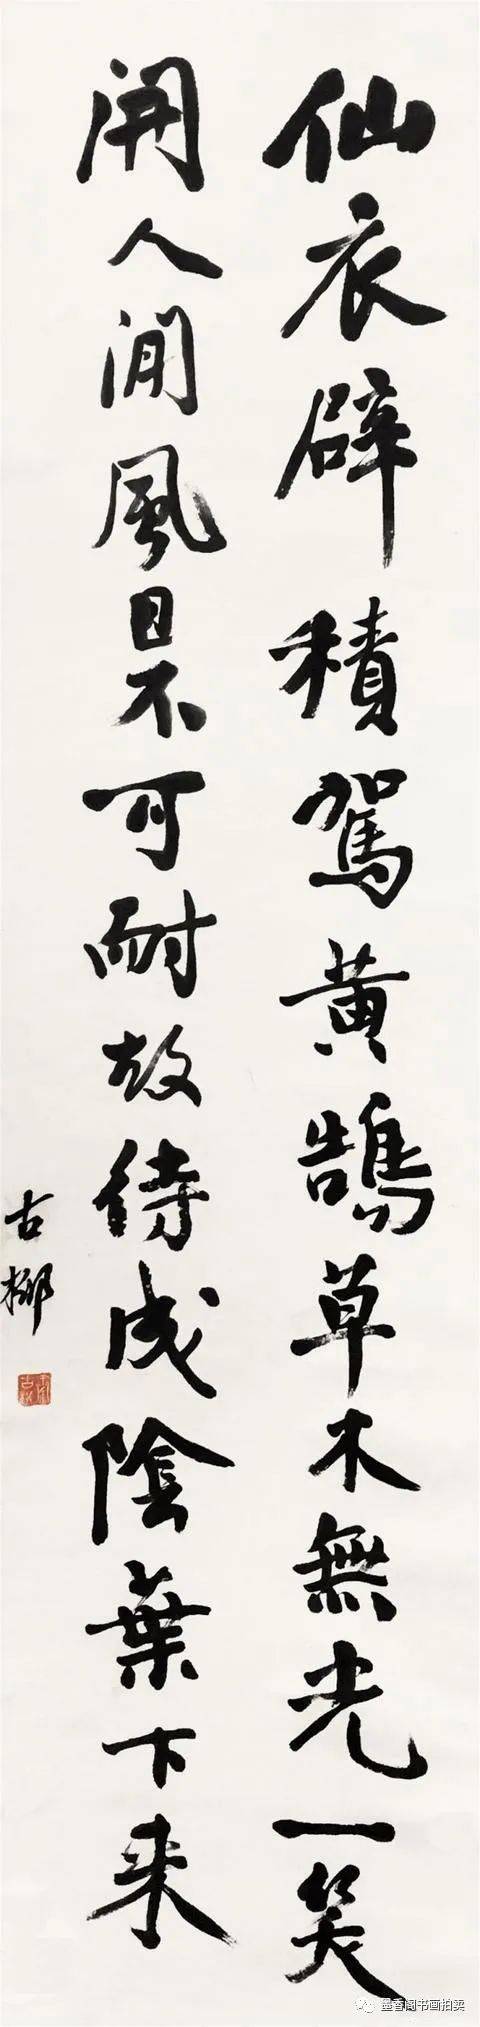 仙衣襞積駕黄鵠草木無光一笑
開人間風日不可耐故待成陰葉下来
古柳
墨香阁书画拍卖